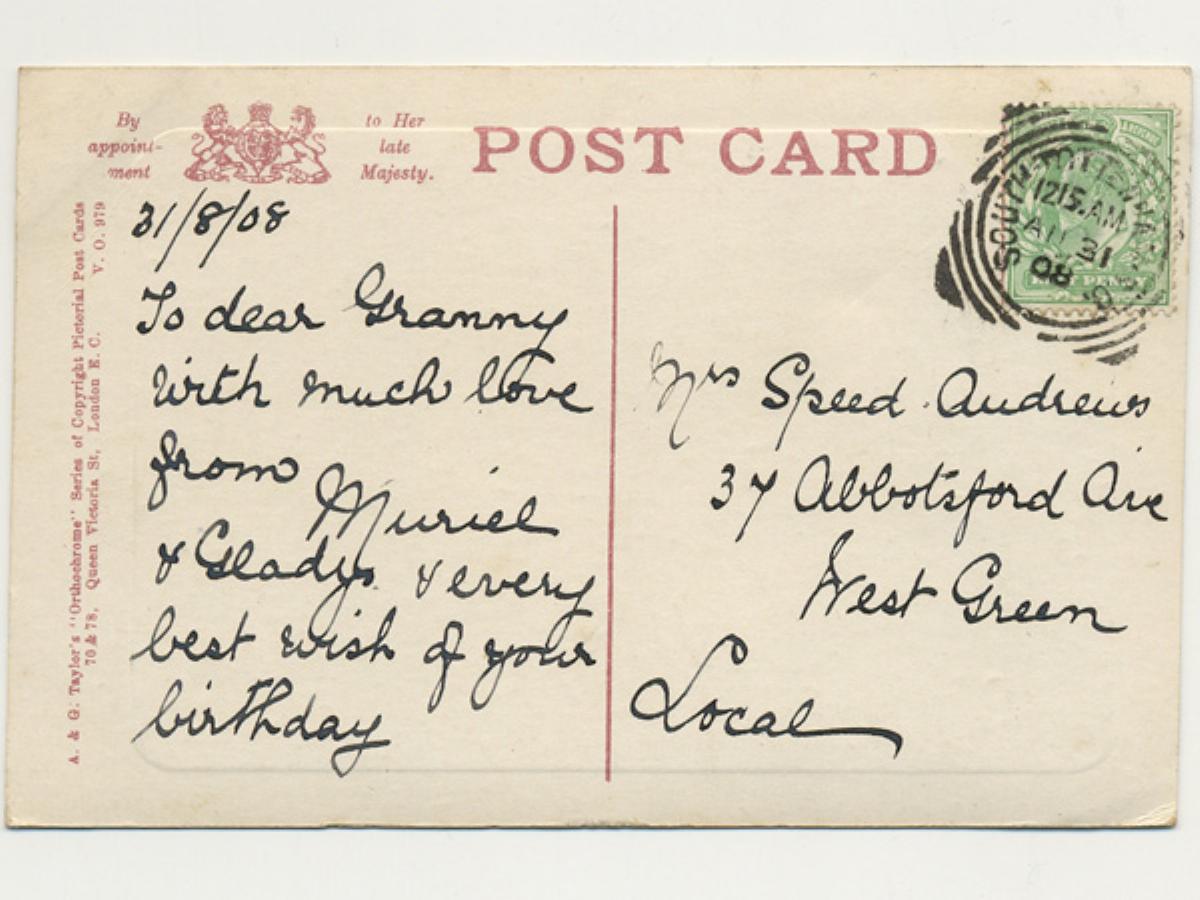 By
appoint-
ment
to Her
late
Majesty.
POST CARD
A. & G. Taylor's "Orthochrome" Series of Copyright Pictorial Post Cards
70 & 78, Queen Victoria St, London E. C. V. O. 979
31/8/08
To dear Granny
with much love
from Muriel
& Gladys & every
best wish of your
birthday
SOUTH TOTTENHAM
1215.AM
AU 31
08
Mrs Speed Andrews
37 Abbotsford Ave
West Green
Local